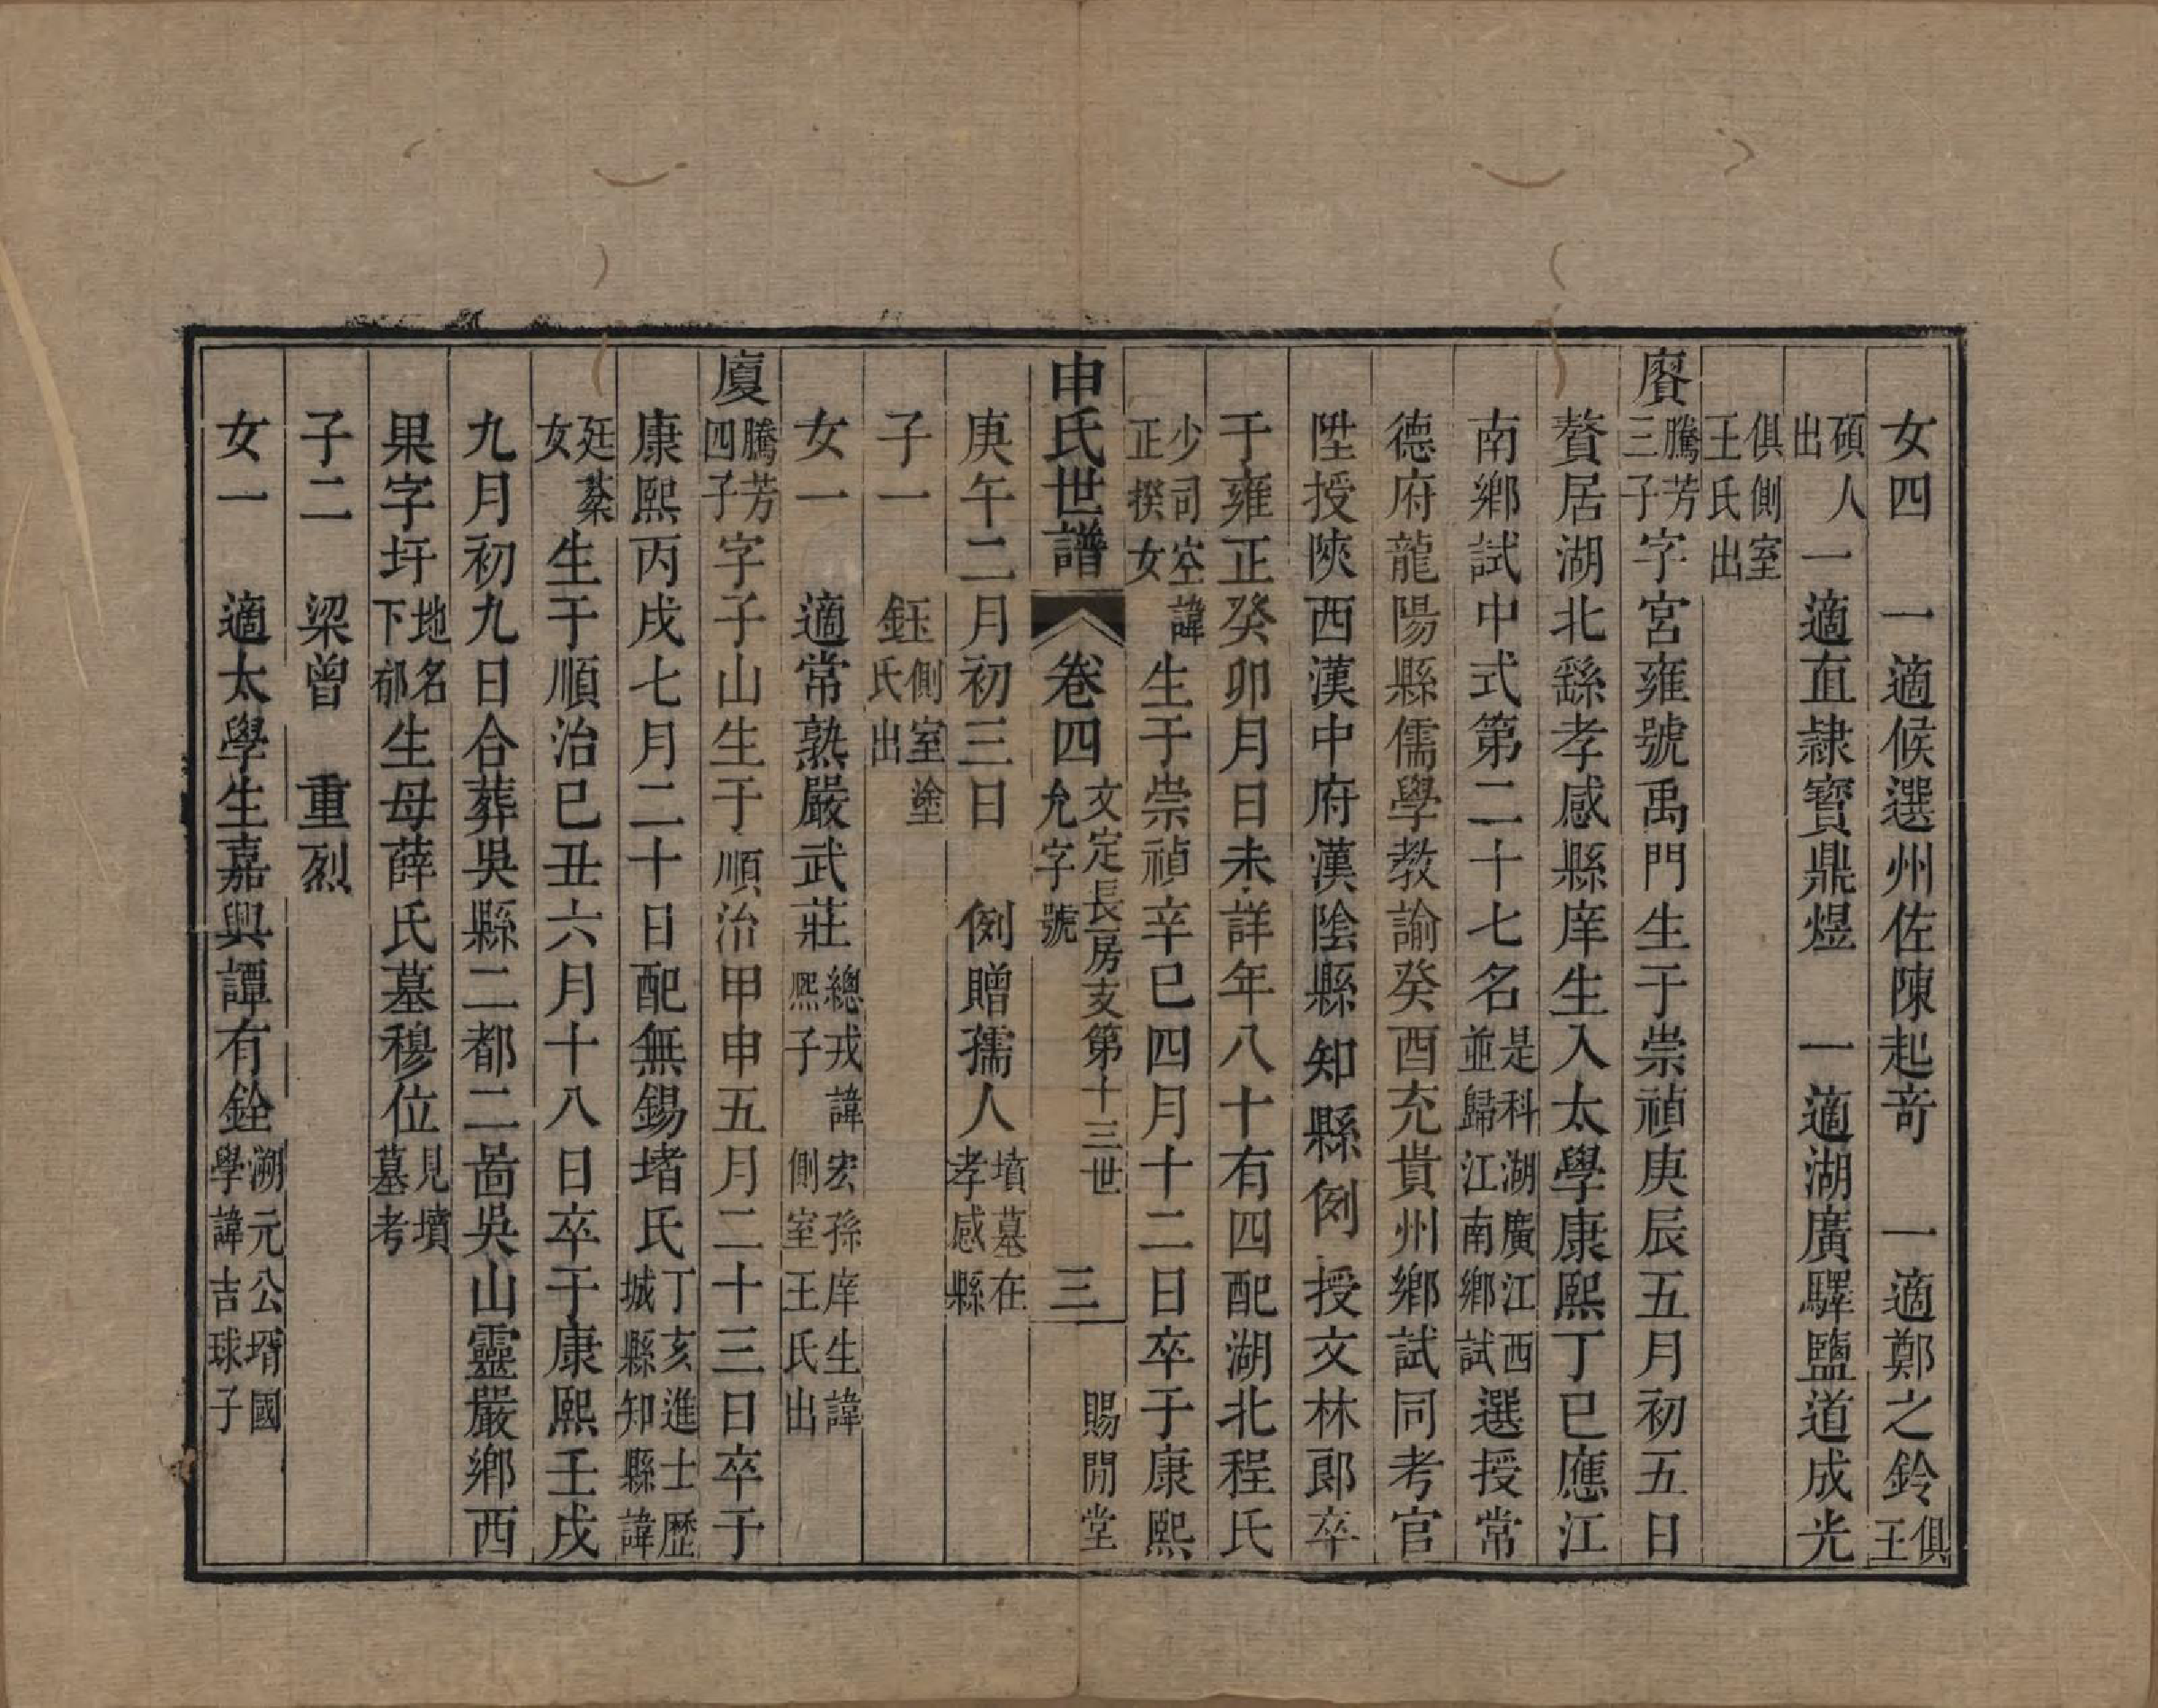 女四　一適候選州佐陳起竒　一適鄭之鈴俱王
碩人出　一適直隷寳鼎煜　一適湖廣驛鹽道成光
俱側室王氏出
賡騰芳三子字宮雍號禹門生于崇禎庚辰五月初五日
贅居湖北繇孝感縣庠生入太學康熙丁巳應江
南鄉試中式第二十七名是科湖廣江西並歸江南鄉試選授常
德府龍陽縣儒學教諭癸酉充貴州鄉試同考官
陞授陝西漢中府漢陰縣知縣例授文林郎卒
于雍正癸卯月日未詳年八十有四配湖北程氏
少司空諱正揆女生于崇禎辛巳四月十二日卒于康熙
申氏世譜　卷四　文定長房支第十三世允字號　三　賜閒堂
庚午二月初三日　例贈孺人墳墓在孝感縣
子一　鈺側室塗氏出
女一　適常熟嚴武莊總戎諱宏孫庠生諱熈子側室王氏出
廈騰芳四子字子山生于順治甲申五月二十三日卒于
康熙丙戌七月二十日配無錫堵氏丁亥進士歷城縣知縣諱
廷棻女生于順治己丑六月十八日卒于康熙壬戌
九月初九日合葬吳縣二都二啚吳山靈嚴鄉西
果字圩地名下郁生母薛氏墓穆位見墳墓考
子二　梁曾　重烈
女一　適太學生嘉興譚有銓溯元公壻國學諱吉球子